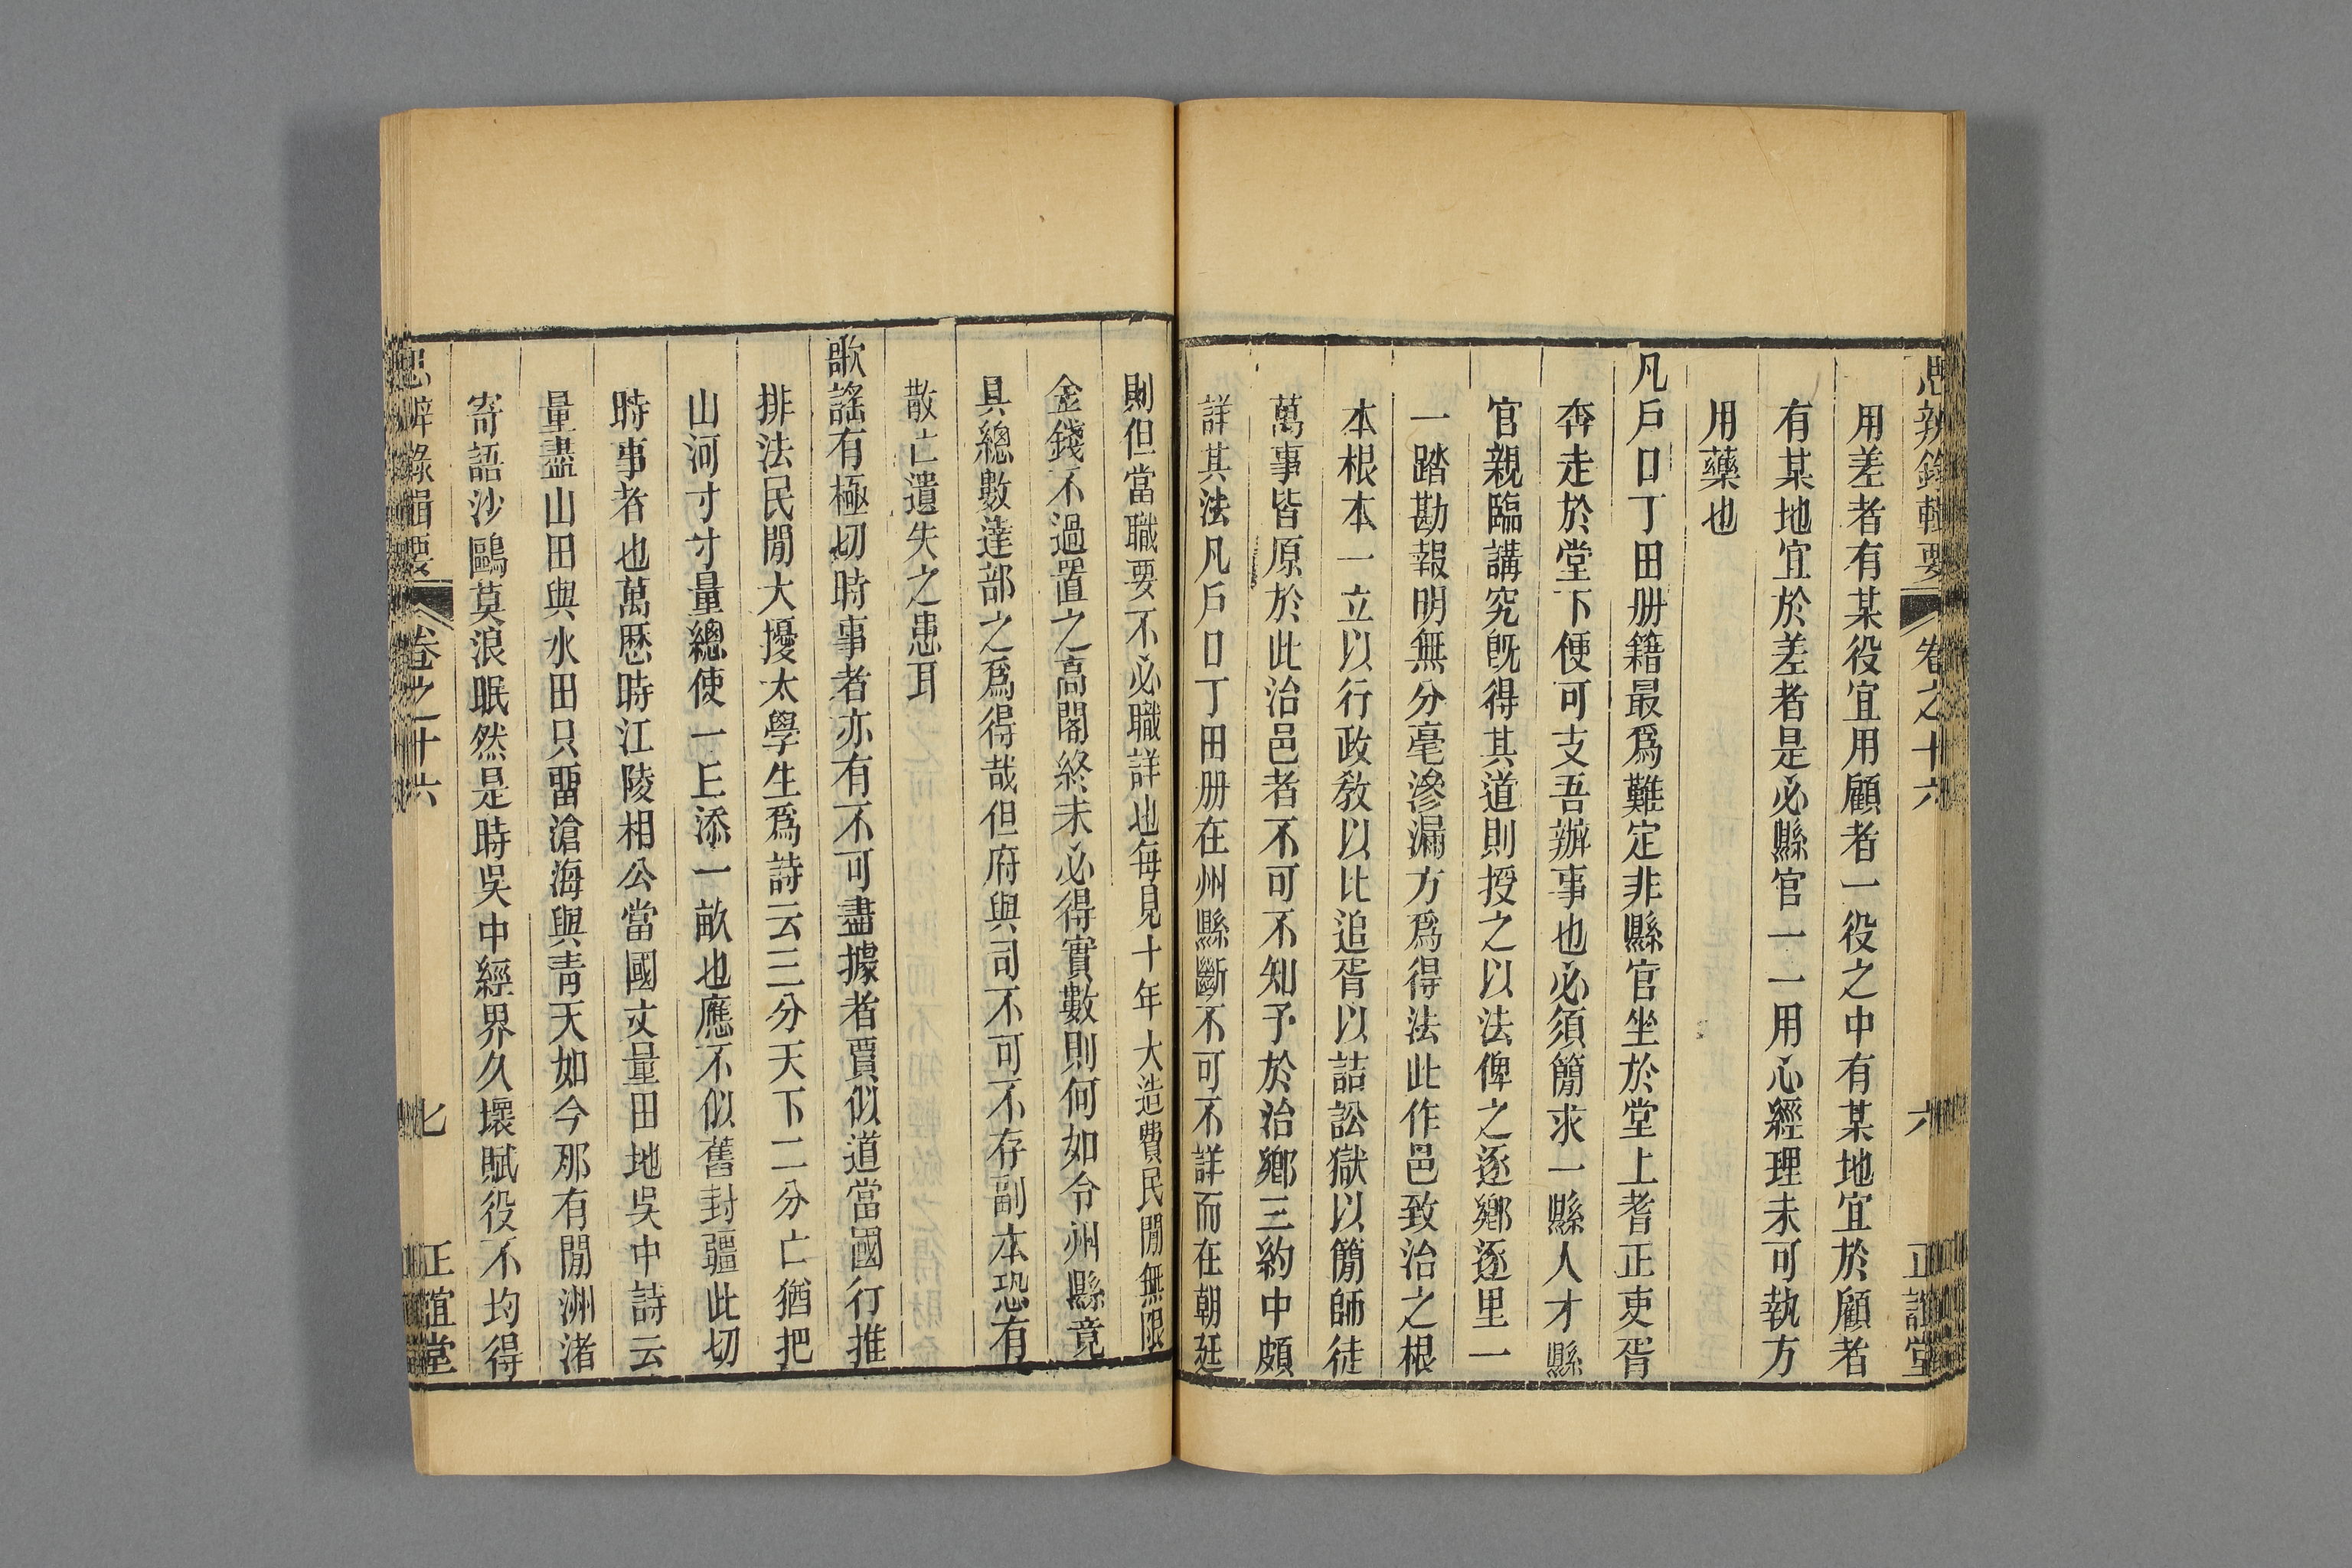 思辨錄輯要 卷之十六 六 正誼堂
用差者有某役宜用顧者一役之中有某地宜於顧者
有某地宜於差者是必縣官一一用心經理未可執方
用藥也
凡戶口丁田册籍最爲難定非縣官坐於堂上耆正吏胥
奔走於堂下便可支吾辦事也必須簡求一縣人才縣
官親臨講究旣得其道則授之以法俾之逐鄕逐里一
一踏勘報明無分毫滲漏方爲得法此作邑致治之根
本根本一立以行政敎以比追胥以詰訟獄以簡師徒
萬事皆原於此治邑者不可不知予於治鄕三約中頗
詳其法凡戶口丁田册在州縣斷不可不詳而在朝廷
則但當職要不必職詳也每見十年大造費民閒無限
金錢不過置之高閣終未必得實數則何如令州縣竟
具總數達部之爲得哉但府與司不可不存副本恐有
散亡遺失之患耳
歌謠有極切時事者亦有不可盡據者賈似道當國行推
排法民閒大擾太學生爲詩云三分天下二分亡猶把
山河寸寸量總使一丘添一畝也應不似舊封疆此切
時事者也萬厯時江陵相公當國丈量田地吳中詩云
量盡山田與水田只畱滄海與靑天如今那有閒洲渚
寄語沙鷗莫浪眠然是時吳中經界久壞賦役不均得
思辨錄輯要 卷之十六 七 正誼堂